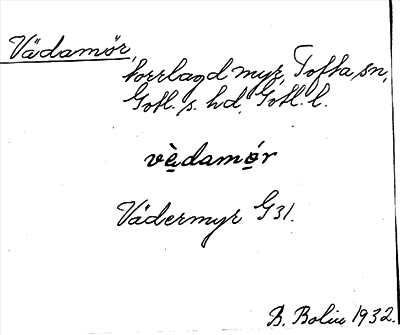 Vädamør,
torrlagd myr, Tofta sn,
Gotl. s. hd, Gotl. l.
vèdamør
Vädermyr G31.
B. Bolin 1932.